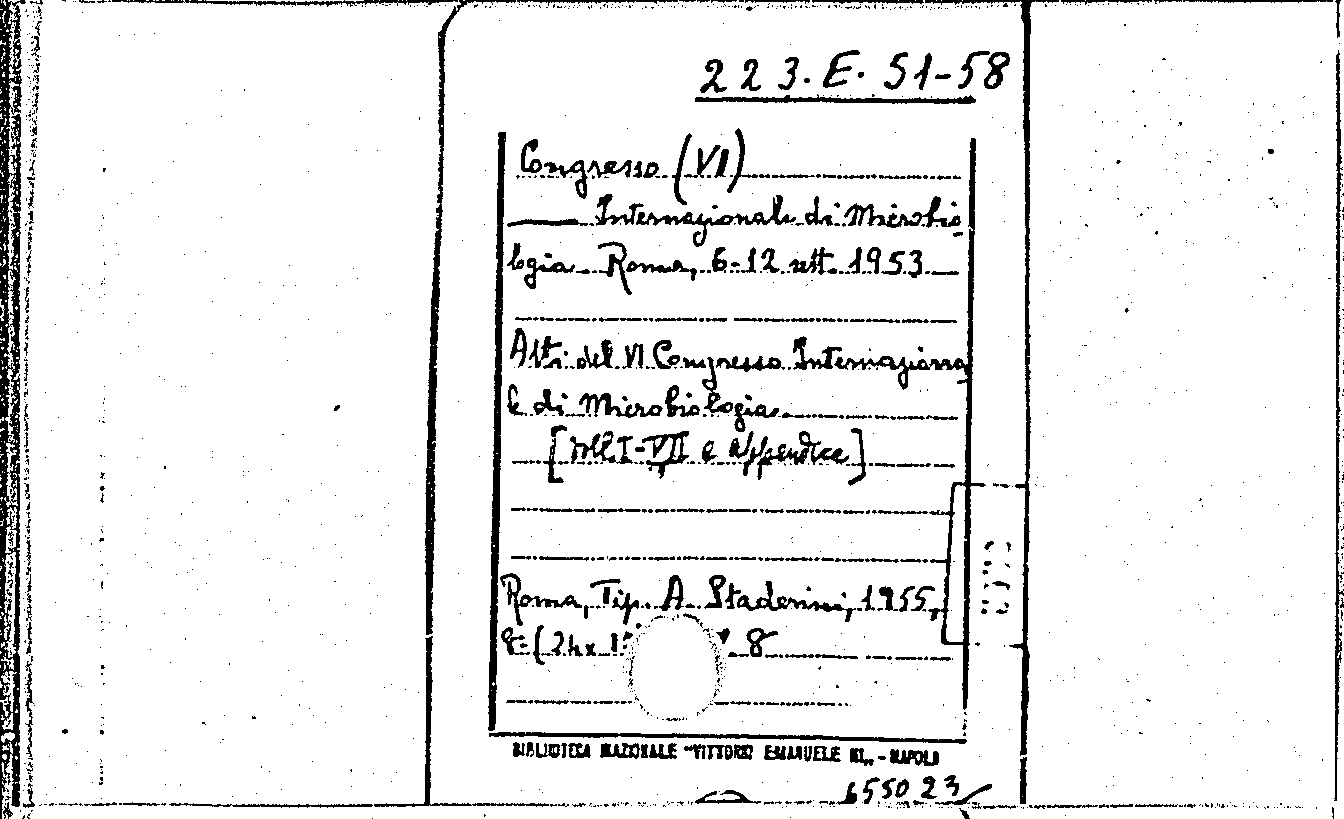 223.E.51-58
Congresso (VI)
Internazionale di Microbio
logia. Roma, 6-12 sett. 1953
Atti del VI Congresso Internaziona
le di Microbiologia.
[voll. I-VII e appendice]
Roma, Tip. A. Staderini, 1955,
8° (24x 8
BIBLIOTECA NAZIONALE "VITTORIO EMANUELE III„ - NAPOLI
655023